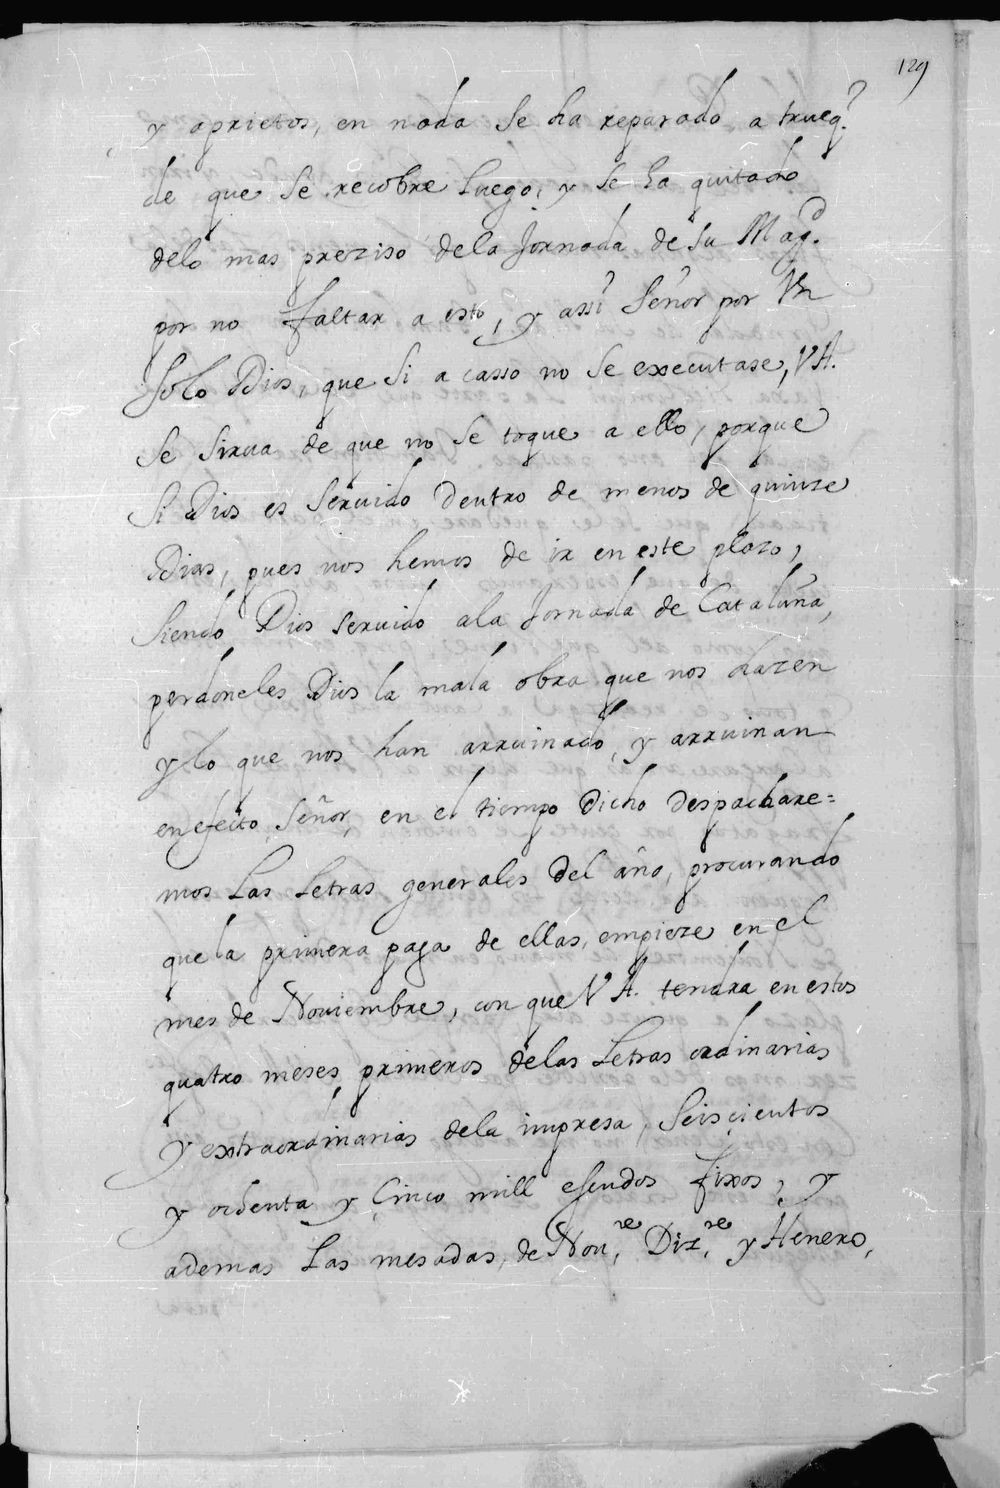 129
y aprietos, en nada se ha reparado a trueq.e
de que se recobre luego, y se ha quitado
delo mas preziso dela Jornada de su Mag.d
por no faltar a esto, y assi Señor por Vn
solo Dios, que si a casso no se executase, VA.
se sirua de que no se toque a ello, porque
si Dios es seruido dentro de menos de quinze
Dias, pues nos hemos de ir en este plazo,
siendo Dios seruido ala Jornada de Cataluña,
perdoneles Dios la mala obra que nos hazen
y lo que nos han arruinado, y arruinan
en efeto Señor en el tiempo dicho despachare=
mos las letras generales del año, procurando
que la primera paga de ellas, empieze en el
mes de Nouiembre, con que V A. tendra en estos
quatro meses primeros delas letras ordinarias
y extraordinarias dela impresa, seiscientos
y ochenta y çinco mill escudos fixos, y
ademas las mesadas, de Nou.re, Diz.re, y Henero,